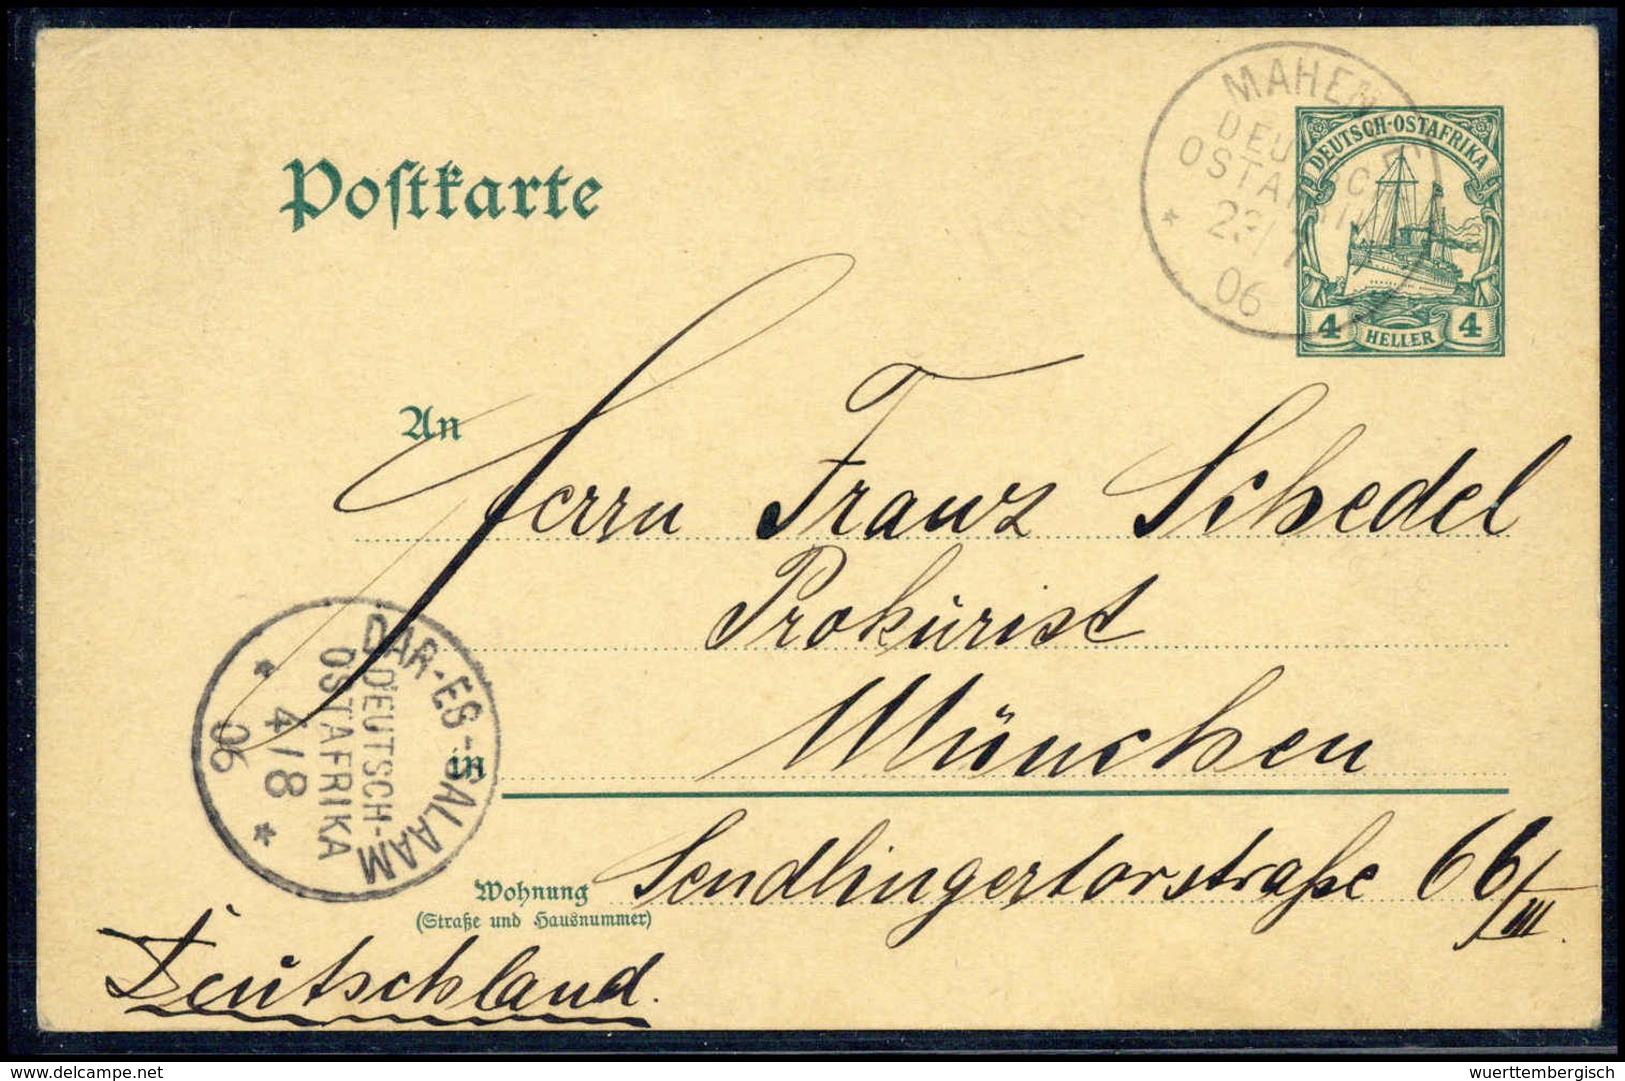 MAHEN
DEUTSCH-OSTAFRIKA
OSTAFRI
06
4 HELLER 4
Postkarte
An
Herrn Franz Schedel
Prokurist
DAR-ES-SALAAM
DEUTSCH-
OSTAFRIKA
* 4/8 *
06
in München
Wohnung Sendlingertorstraße 66/III.
(Straße und Hausnummer)
Deutschland.
www.delcampe.net
wuerttembergisch